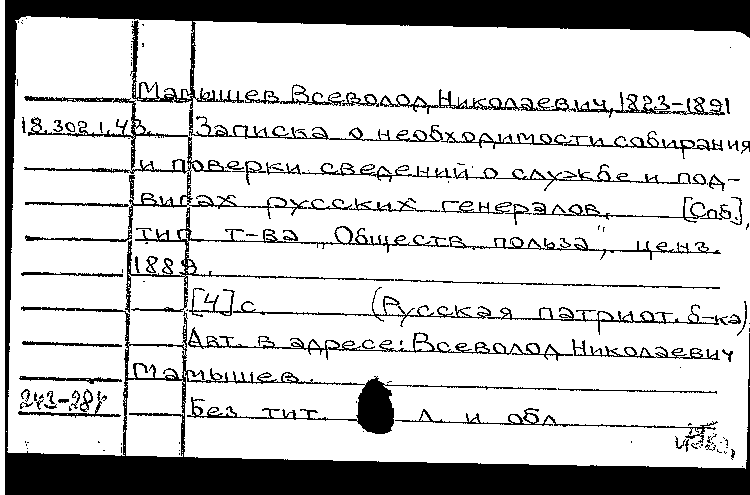 Мамышев Всеволод Николаевич, 1823-1891
18.302.1.43. Записка о необходимости собирания
и поверки сведений о службе и под-
вигах русских генералов. [Спб],
тип. т-ва „Обществ. польза", ценз.
1889.
[4] с. (Русская патриот. б-ка)
Авт. в адресе: Всеволод Николаевич
Мамышев.
Без тит. л. и обл.